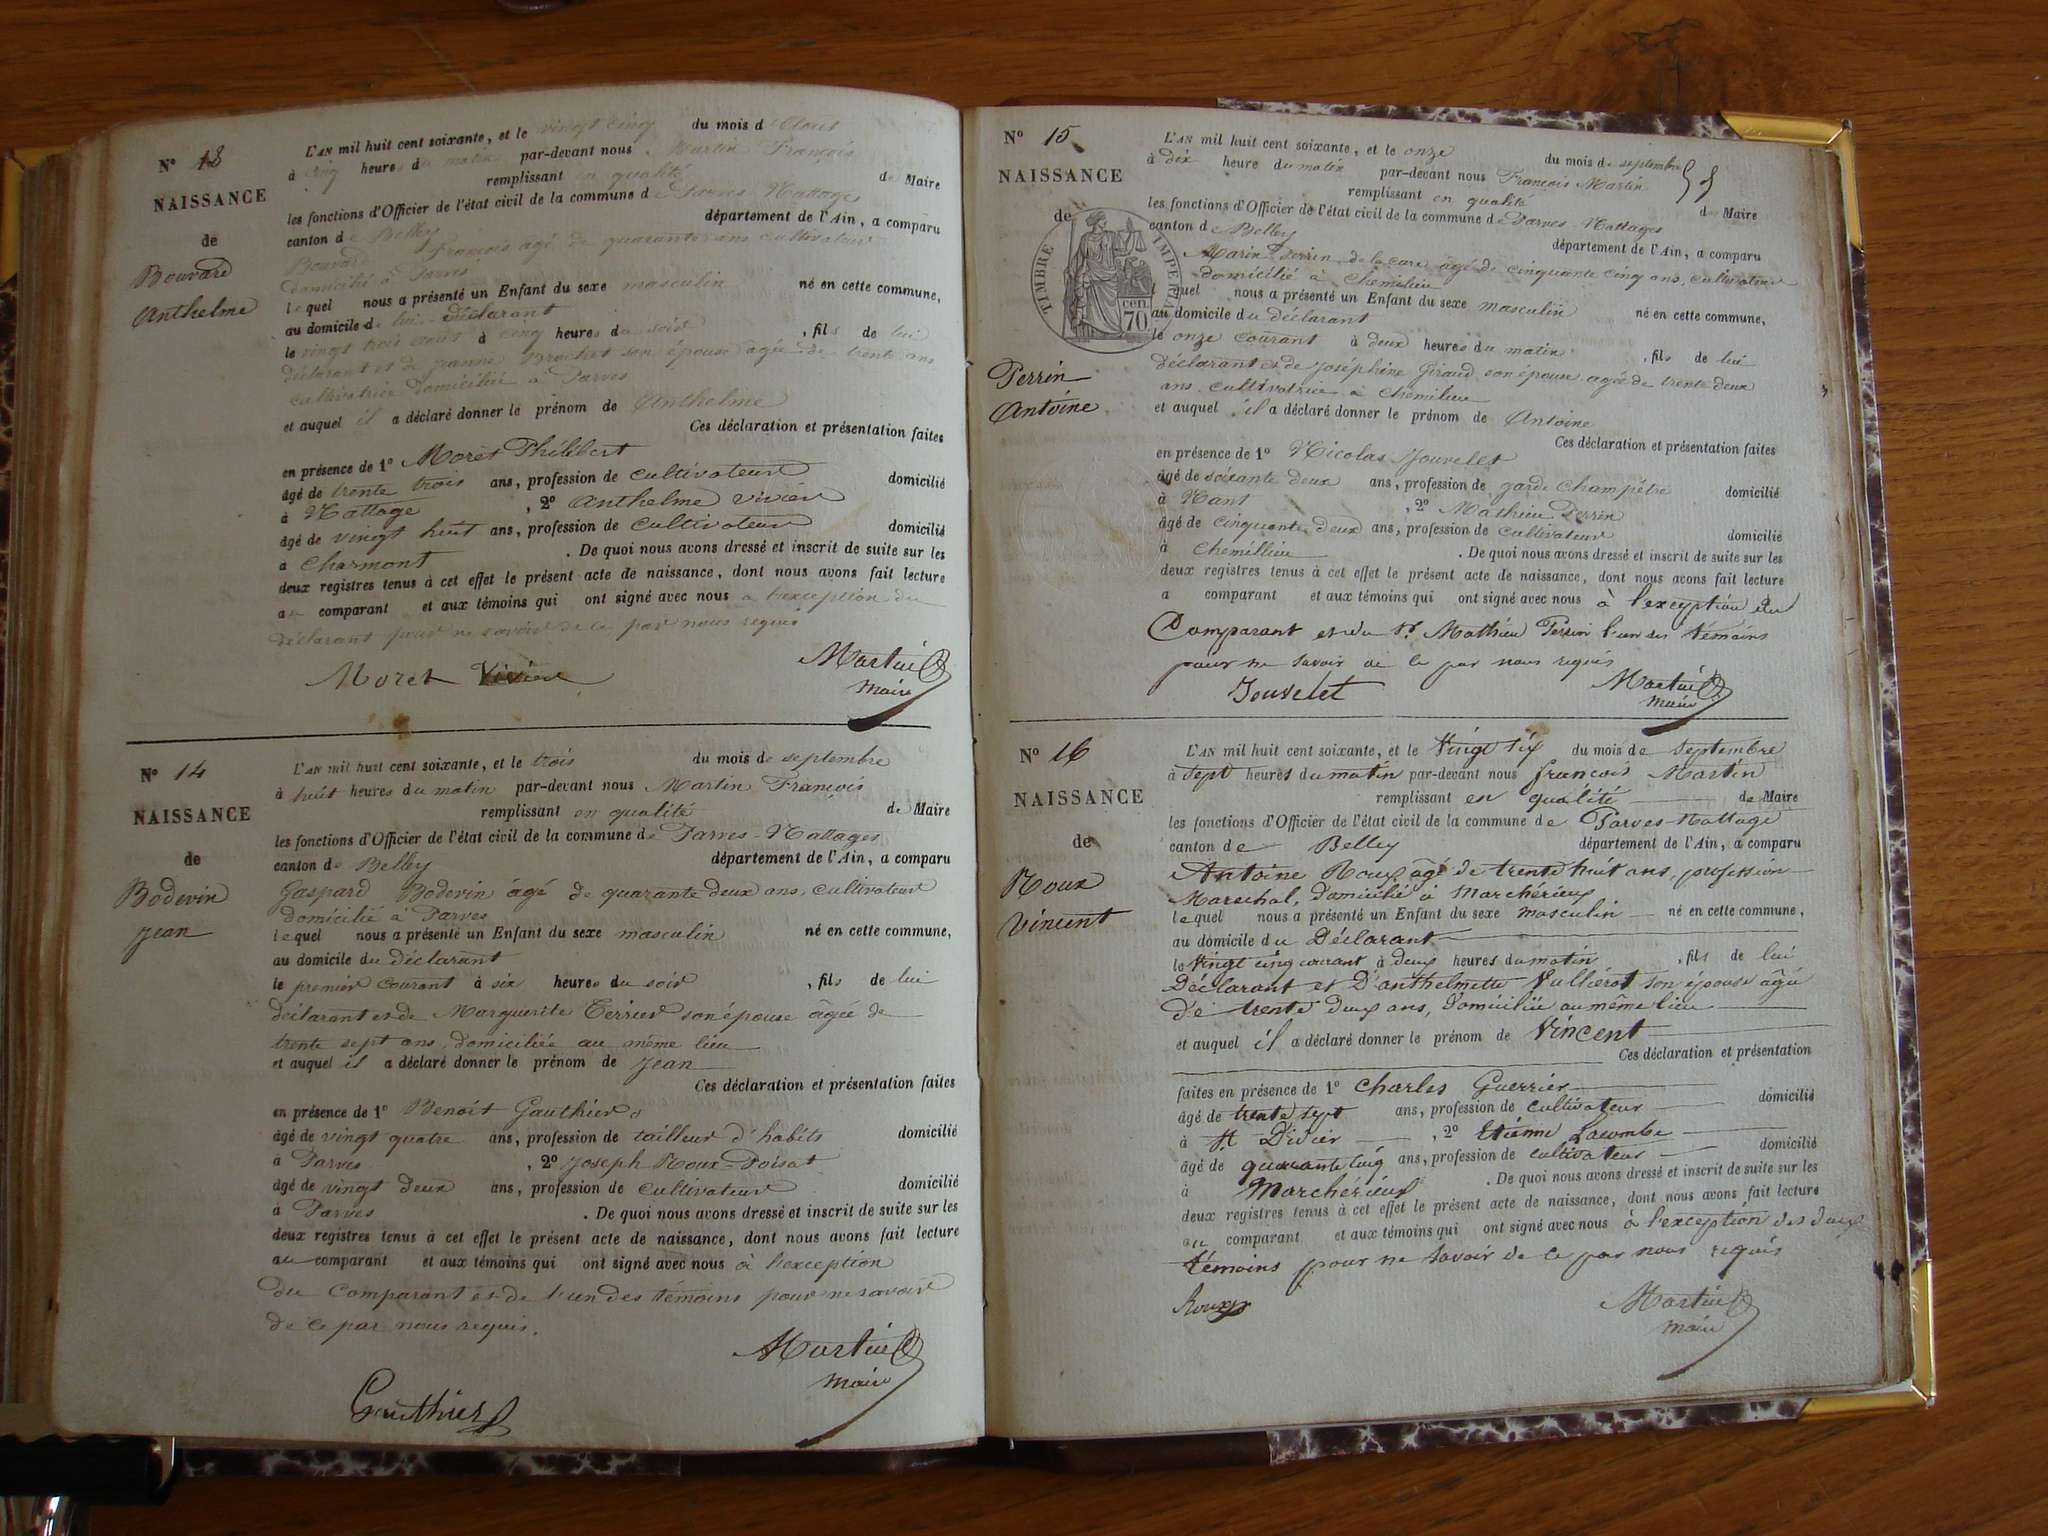 N° 13
NAISSANCE
de
Bouvard
Anthelme
L'AN mil huit cent soixante, et le vingt cinq du mois d'Aout
à cinq heures du matin par-devant nous Martin François
remplissant en qualité de Maire
les fonctions d'Officier de l'état civil de la commune de Parves-Nattages
canton de Belley département de l'Ain, a comparu
Bouvard François agé de quarante ans cultivateur
domicilié à Parves
lequel nous a présenté un Enfant du sexe masculin né en cette commune,
au domicile de lui déclarant
le vingt trois aout à cinq heures du soir, fils de lui
déclarant et de jeanne Brochet son épouse agée de trente ans
cultivatrice domiciliée à Parves
et auquel il a déclaré donner le prénom de Anthelme
Ces déclaration et présentation faites
en présence de 1° Moret Philibert
âgé de trente trois ans, profession de cultivateur domicilié
à Nattage, 2° Anthelme Vivier
âgé de vingt huit ans, profession de cultivateur domicilié
à Charmont. De quoi nous avons dressé et inscrit de suite sur les
deux registres tenus à cet effet le présent acte de naissance, dont nous avons fait lecture
au comparant et aux témoins qui ont signé avec nous a l'exception du
déclarant pour ne savoir de ce par nous requis
Moret Vivier Martin
Maire
N° 14
NAISSANCE
de
Bodevin
Jean
L'AN mil huit cent soixante, et le trois du mois de septembre
à huit heures du matin par-devant nous Martin François
remplissant en qualité de Maire
les fonctions d'Officier de l'état civil de la commune de Parves-Nattages
canton de Belley département de l'Ain, a comparu
Gaspard Bodevin âgé de quarante deux ans, cultivateur
domicilié à Parves
lequel nous a présenté un Enfant du sexe masculin né en cette commune,
au domicile du déclarant
le premier courant à six heures du soir, fils de lui
déclarant et de Marguerite Terrier son épouse âgée de
trente sept ans, domiciliée au même lieu
et auquel il a déclaré donner le prénom de Jean
Ces déclaration et présentation faites
en présence de 1° Benoit Gauthier
âgé de vingt quatre ans, profession de tailleur d'habits domicilié
à Parves, 2° Joseph Roux-Poisat
âgé de vingt deux ans, profession de cultivateur domicilié
à Parves. De quoi nous avons dressé et inscrit de suite sur les
deux registres tenus à cet effet le présent acte de naissance, dont nous avons fait lecture
au comparant et aux témoins qui ont signé avec nous à l'exception
du comparant et de l'un des témoins pour ne savoir
de ce par nous requis.
Martin
Maire
Gauthier
N° 15
NAISSANCE
de
TIMBRE IMPERIAL
70 cen.
Perrin
Antoine
L'AN mil huit cent soixante, et le onze du mois de septembre
à dix heure du matin par-devant nous François Martin
remplissant en qualité de Maire
les fonctions d'Officier de l'état civil de la commune de Parves-Nattages
canton de Belley département de l'Ain, a comparu
Marin Perrin de la cure âgé de cinquante cinq ans, cultivateur
domicilié à Chemilieu
lequel nous a présenté un Enfant du sexe masculin né en cette commune,
au domicile du déclarant
le onze courant à deux heures du matin, fils de lui
déclarant et de Joséphine Giraud son épouse agée de trente deux
ans cultivatrice à Chemilieu
et auquel il a déclaré donner le prénom de Antoine
Ces déclaration et présentation faites
en présence de 1° Nicolas Jouvelet
âgé de soixante deux ans, profession de garde champêtre domicilié
à Nant, 2° Mathieu Perrin
âgé de cinquante deux ans, profession de cultivateur domicilié
à Chemillieu. De quoi nous avons dressé et inscrit de suite sur les
deux registres tenus à cet effet le présent acte de naissance, dont nous avons fait lecture
a comparant et aux témoins qui ont signé avec nous à l'exception du
Comparant et du Sr Mathieu Perrin l'un des témoins
pour ne savoir de ce par nous requis
Jouvelet Martin
Maire
N° 16
NAISSANCE
de
Roux
Vincent
L'AN mil huit cent soixante, et le Vingt six du mois de septembre
à sept heures du matin par-devant nous françois Martin
remplissant en qualité de Maire
les fonctions d'Officier de l'état civil de la commune de Parves-Nattage
canton de Belley département de l'Ain, a comparu
Antoine Roux âgé de trente huit ans, profession
Marechal, domicilié à Marchérieux
lequel nous a présenté un Enfant du sexe masculin né en cette commune,
au domicile du Déclarant
le Vingt cinq courant à deux heures du matin, fils de lui
Déclarant et D'anthelmette Vullierot son épouse âgée
de trente deux ans, Domiciliée au même lieu
et auquel il a déclaré donner le prénom de Vincent
Ces déclaration et présentation
faites en présence de 1° Charles Guerrier
âgé de trente sept ans, profession de cultivateur domicilié
à St Didier, 2° Etienne Lacombe
âgé de quarante cinq ans, profession de cultivateur domicilié
à Marchérieux. De quoi nous avons dressé et inscrit de suite sur les
deux registres tenus à cet effet le présent acte de naissance, dont nous avons fait lecture
au comparant et aux témoins qui ont signé avec nous à l'exception des deux
témoins pour ne savoir de ce par nous requis
Roux Martin
Maire